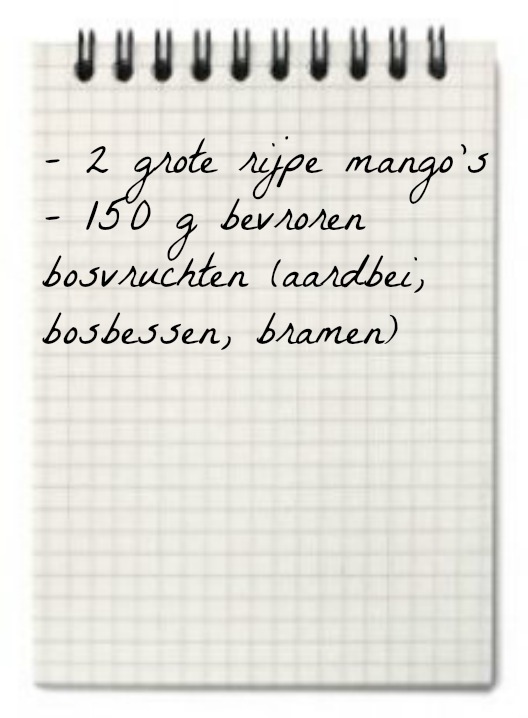 - 2 grote rijpe mango's
- 150 g bevroren
bosvruchten (aardbei,
bosbessen, bramen)